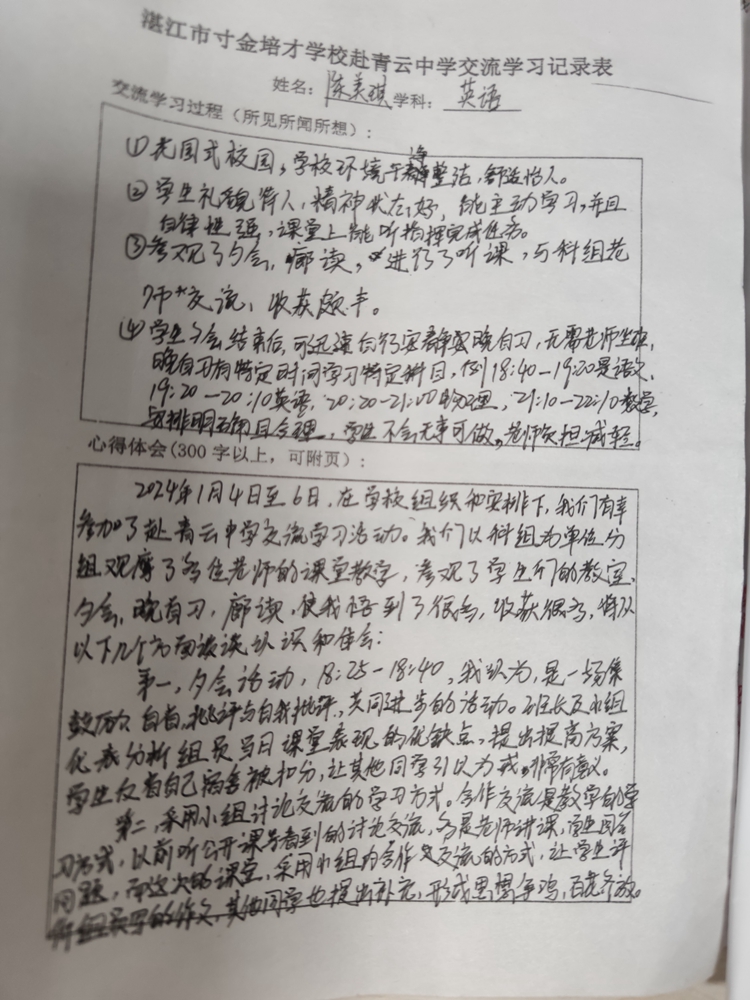 湛江市寸金培才学校赴青云中学交流学习记录表
姓名：陈美琪 学科：英语
交流学习过程（所见所闻所想）：
①花园式校园，学校环境干净整洁，舒适怡人。
②学生礼貌待人，精神状态好，能主动学习，并且
自律性强，课堂上能听指挥完成任务。
③参观了夕会，廊读，进行了听课，与科组老
师交流，收获颇丰。
④学生夕会结束后，可迅速自行安静晚自习，无需老师坐班，
晚自习有特定时间学习特定科目，例18:40—19:20是语文，
19:20—20:10英语，20:20—21:00物理，21:10—22:10数学，
安排明确且合理，学生不会无事可做，老师负担减轻。
心得体会（300字以上，可附页）：
2024年1月4日至6日，在学校组织和安排下，我们有幸
参加了赴青云中学交流学习活动。我们以科组为单位分
组观摩了各位老师的课堂教学，参观了学生们的教室、
夕会，晚自习，廊读，使我悟到了很多，收获很多，将从
以下几个方面谈谈认识和体会：
第一，夕会活动，18:25—18:40，我认为，是一场集
鼓励、自省，批评与自我批评，共同进步的活动。班长及小组
代表分析组员当日课堂表现的优缺点，提出提高方案，
学生反省自己宿舍被扣分，让其他同学引以为戒，非常有意义。
第二，采用小组讨论交流的学习方式。合作交流是教学的学
习方式，以前听公开课会看到的讨论交流，多是老师讲课，学生回答
问题，而这次的课堂，采用小组内合作交流的方式，让学生评
的作文，其他同学也提出补充，形成思想争鸣，百花齐放。